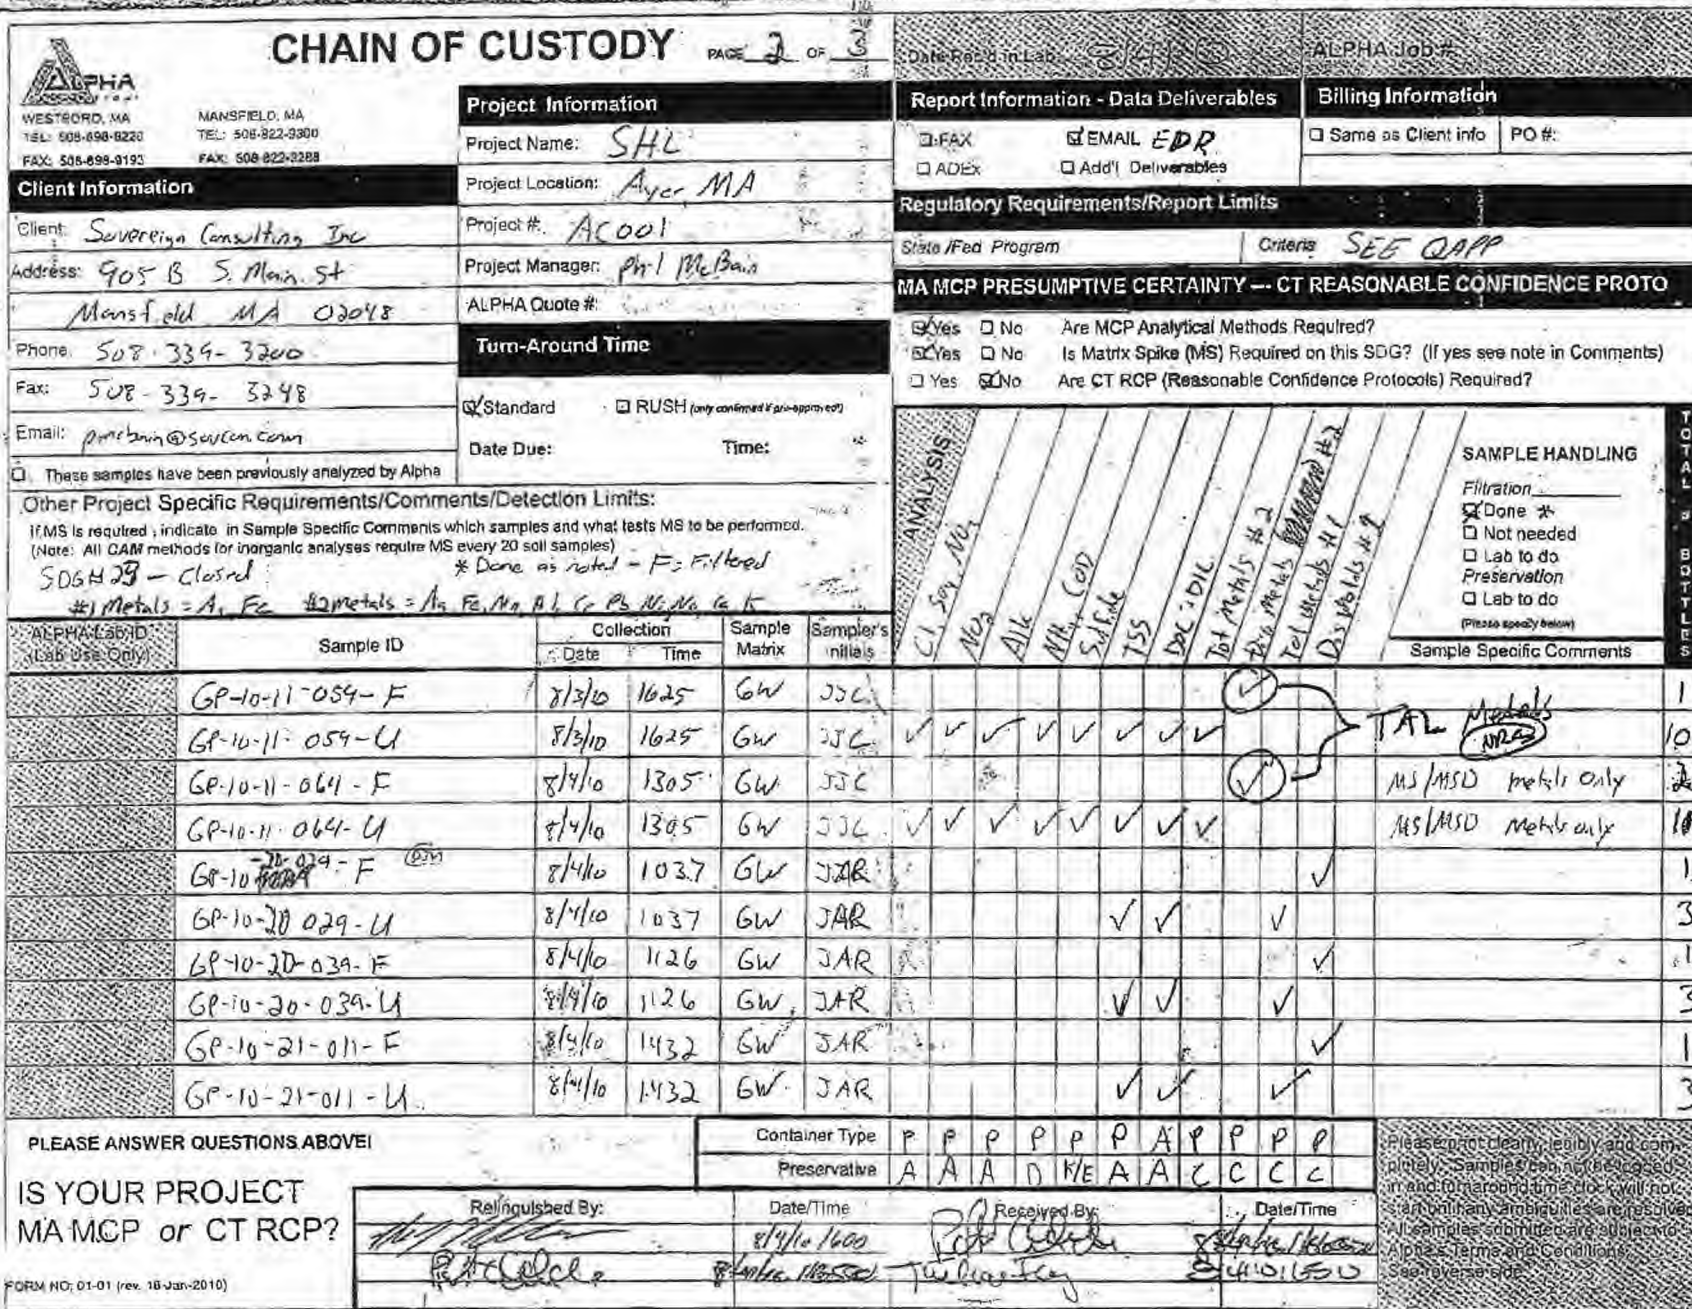 CHAIN OF CUSTODY PAGE 2 OF 3
Date Rec'd in Lab: ALPHA Job #:
ALPHA
WESTBORO, MA MANSFIELD, MA
TEL: 508-898-9220 TEL: 508-822-9300
FAX: 508-898-9193 FAX: 508-822-3288
Client Information
Client: Sovereign Consulting Inc
Address: 905 B S. Main St
Mansfield MA 02048
Phone: 508-339-3200
Fax: 508-339-3248
Email: pmcbain@sovcon.com
These samples have been previously analyzed by Alpha
Project Information
Project Name: SHL
Project Location: Ayer, MA
Project #: AC001
Project Manager: Phil McBain
ALPHA Quote #:
Turn-Around Time
Standard RUSH (only confirmed if pre-approved!)
Date Due: Time:
Report Information - Data Deliverables
FAX EMAIL EDR
ADEx Add'l Deliverables
Billing Information
Same as Client info PO #:
Regulatory Requirements/Report Limits
State/Fed Program Criteria SEE QAPP
MA MCP PRESUMPTIVE CERTAINTY --- CT REASONABLE CONFIDENCE PROTO
Yes No Are MCP Analytical Methods Required?
Yes No Is Matrix Spike (MS) Required on this SDG? (If yes see note in Comments)
Yes No Are CT RCP (Reasonable Confidence Protocols) Required?
Other Project Specific Requirements/Comments/Detection Limits:
If MS is required, indicate in Sample Specific Comments which samples and what tests MS to be performed.
(Note: All CAM methods for inorganic analyses require MS every 20 soil samples)
SDG# 29 - Closed * Done as noted - F = Filtered
#1 Metals = As, Fe #2 metals = As Fe, Mn, Al, Cr Pb Ni, Na Ca K
ANALYSIS
Cl, SO4, NO3
NO2
Alk
NH4 COD
Sulfide
TSS
DOC
Tot Metals #2
Dis Metals #2
Tot Metals #1
Dis Metals #1
SAMPLE HANDLING
Filtration
Done *
Not needed
Lab to do
Preservation
Lab to do
(Please specify below)
TOTAL # BOTTLES
ALPHA Lab ID (Lab Use Only) Sample ID Collection Date Time Sample Matrix Sampler's Initials Sample Specific Comments
GP-10-11-059-F 8/3/10 1625 GW JJC 1
GP-10-11-059-U 8/3/10 1625 GW JJC TAL Metals 10
GP-10-11-064-F 8/4/10 1305 GW JJC MS/MSD metals Only
GP-10-11-064-U 8/4/10 1305 GW JJC MS/MSD Metals only
GP-10-20-029-F 8/4/10 1037 GW JAR 1
GP-10-20 029-U 8/4/10 1037 GW JAR 3
GP-10-20-039-F 8/4/10 1126 GW JAR 1
GP-10-20-039-U 8/4/10 1126 GW JAR 3
GP-10-21-011-F 8/4/10 1432 GW JAR 1
GP-10-21-011-U 8/4/10 1432 GW JAR 3
PLEASE ANSWER QUESTIONS ABOVE!
IS YOUR PROJECT
MA MCP or CT RCP?
FORM NO: 01-01 (rev. 18-Jan-2010)
Container Type P P P P P P A P P P P
Preservative A A A D K/E A A C C C C
Relinquished By: Date/Time Received By: Date/Time
8/4/10 1600
Please print clearly, legibly and completely. Samples can not be logged
in and turnaround time clock will not
start until any ambiguities are resolved.
All samples submitted are subject to
Alpha's Terms and Conditions.
See reverse side.